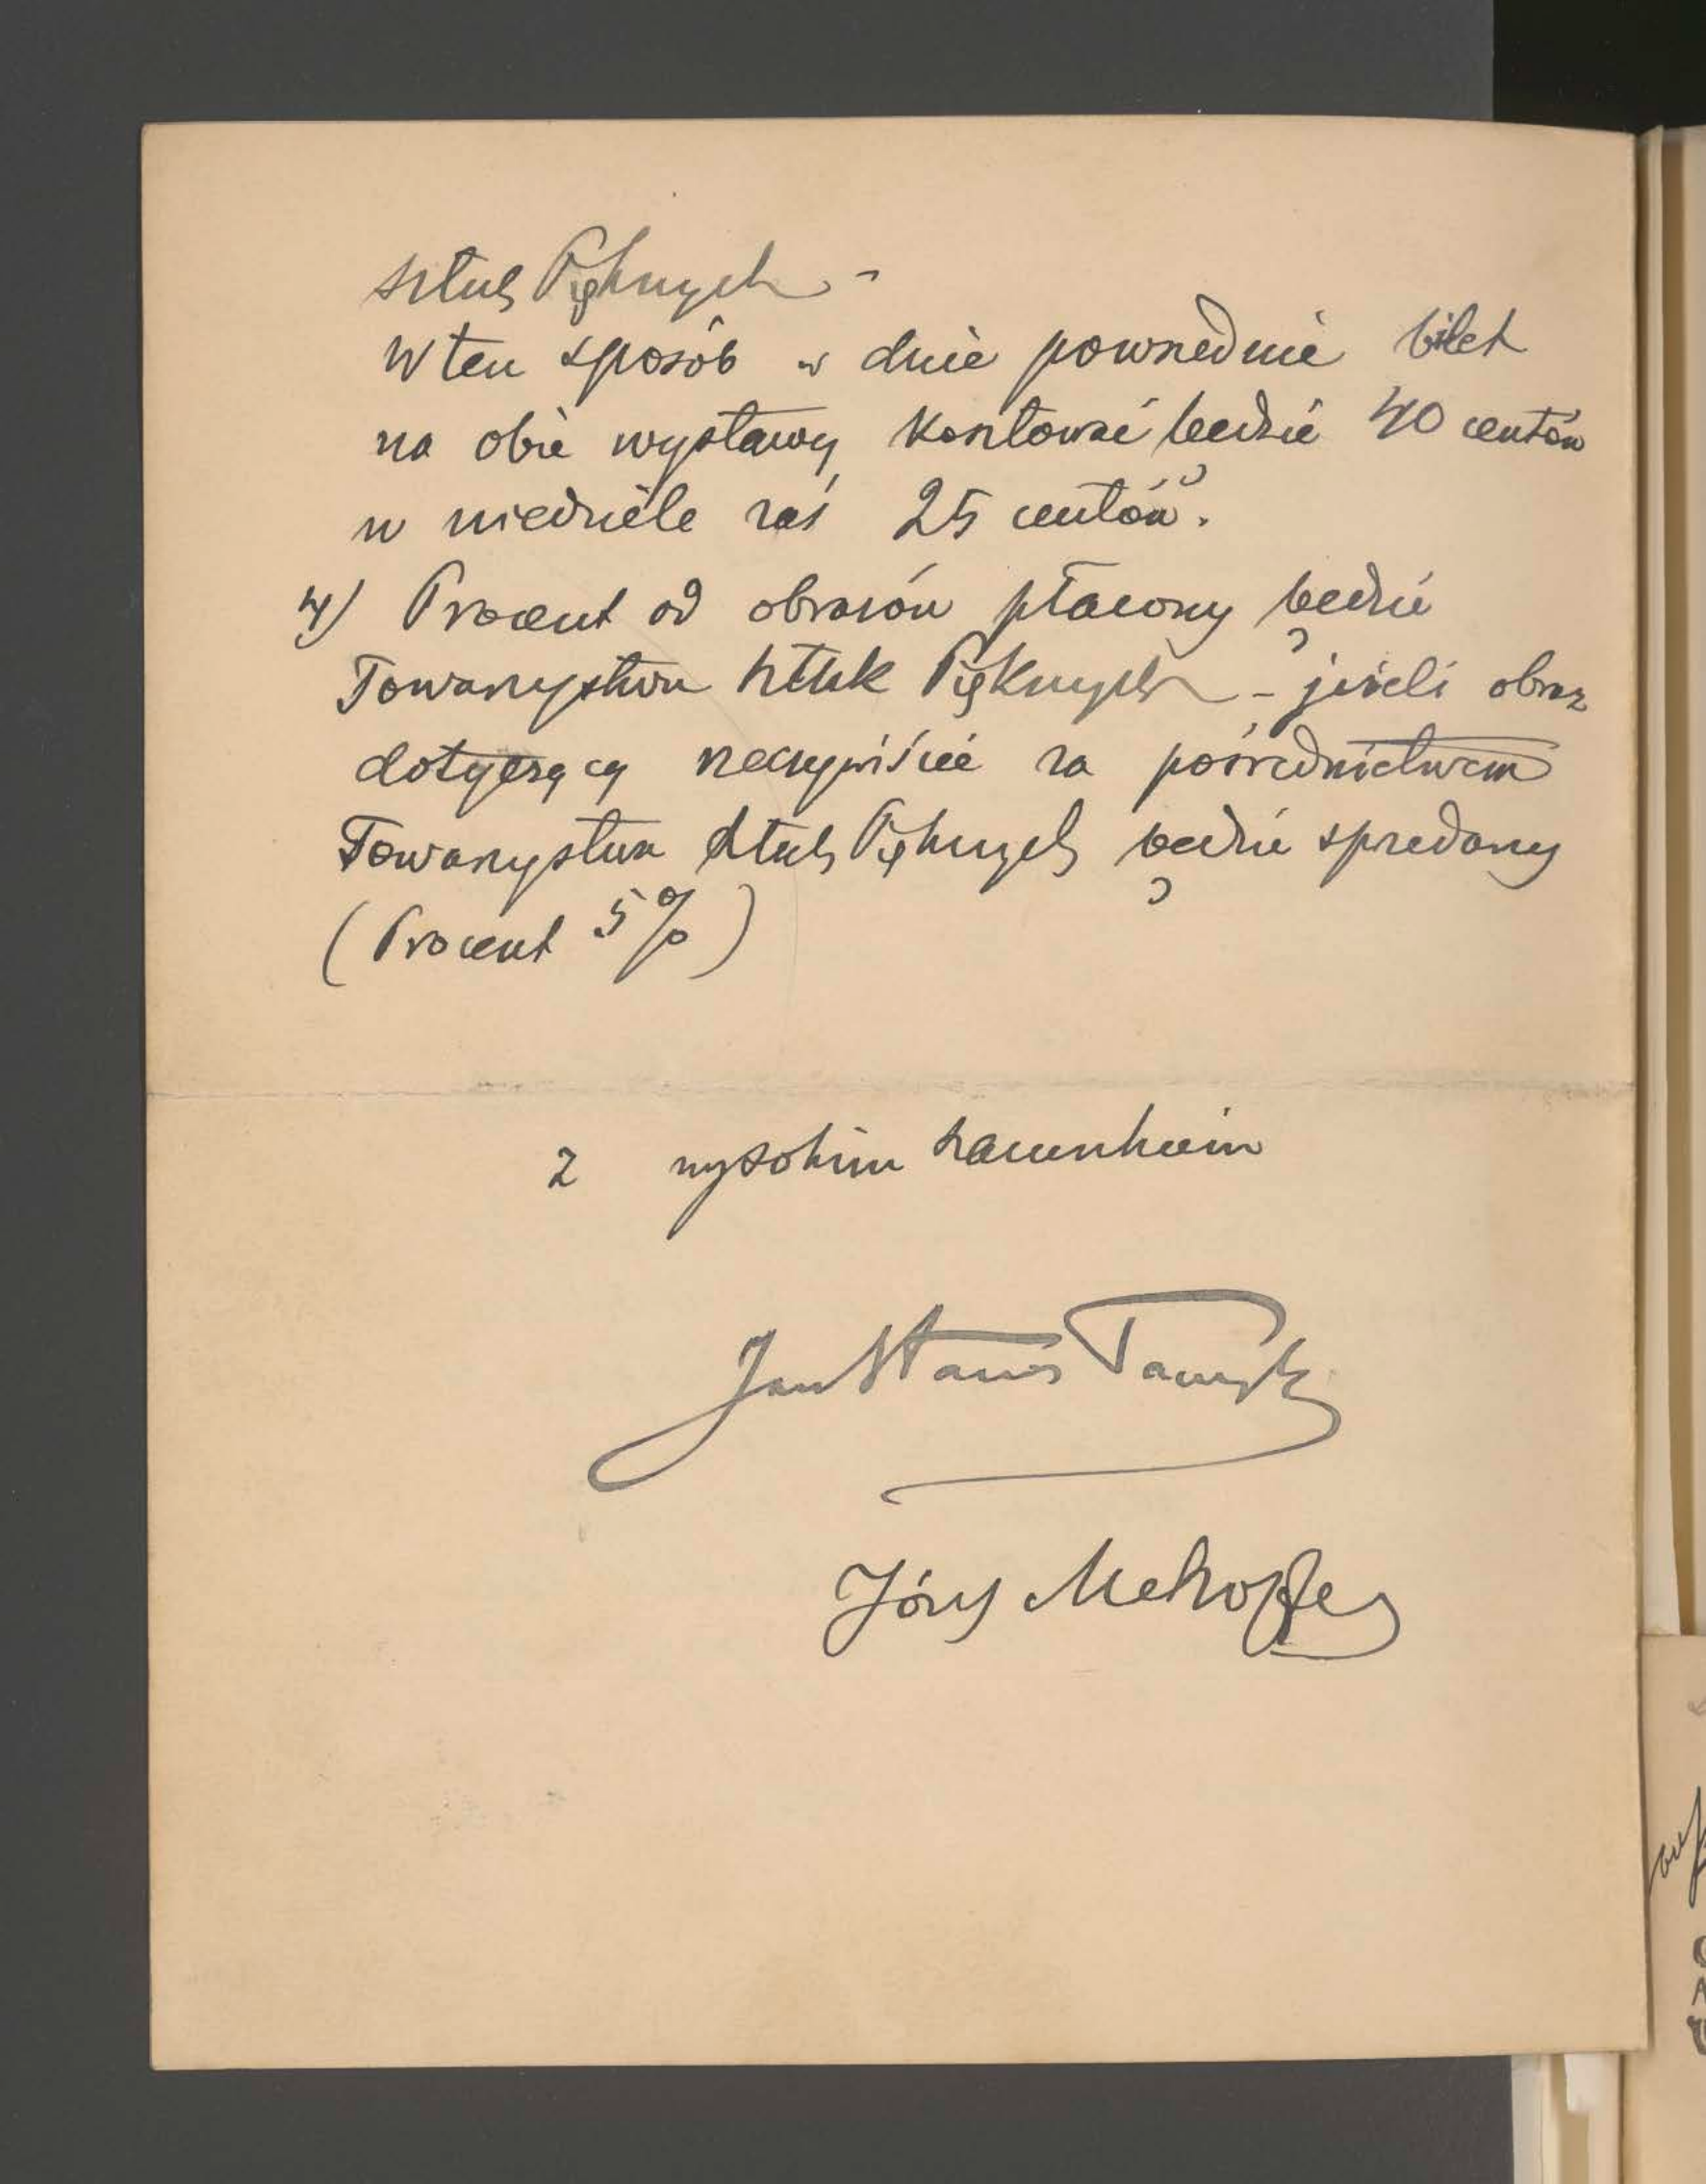 sztuk Pięknych -
W ten sposób w dnie powszednie bilet
na obie wystawy kosztować będzie 40 centów
w niedziele zaś 25 centów.
4) Procent od obrazów płacony będzie
Towarzystwu Sztuk Pięknych - jeżeli obraz
dotyczący rzeczywiście za pośrednictwem
Towarzystwa Sztuk Pięknych będzie sprzedany
(Procent 5%)
Z wysokim szacunkiem
Jan Stanisławski
Józef Mehoffer